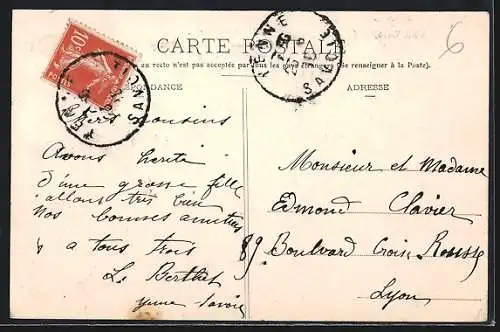 6
CARTE POSTALE
au recto n'est pas accepté par tous les pays étrangers (Se renseigner à la Poste).
CORRESPONDANCE
ADRESSE
YENNE
SAVOIE
10
POSTES
Chers Cousins
Avons hérité
d'une grosse fille
allons très bien
Nos bonnes amitiés
à tous trois
L. Berthet
Yenne Savoie
Monsieur et Madame
Edmond Clavier
89 Boulevard Croix Rousse
Lyon